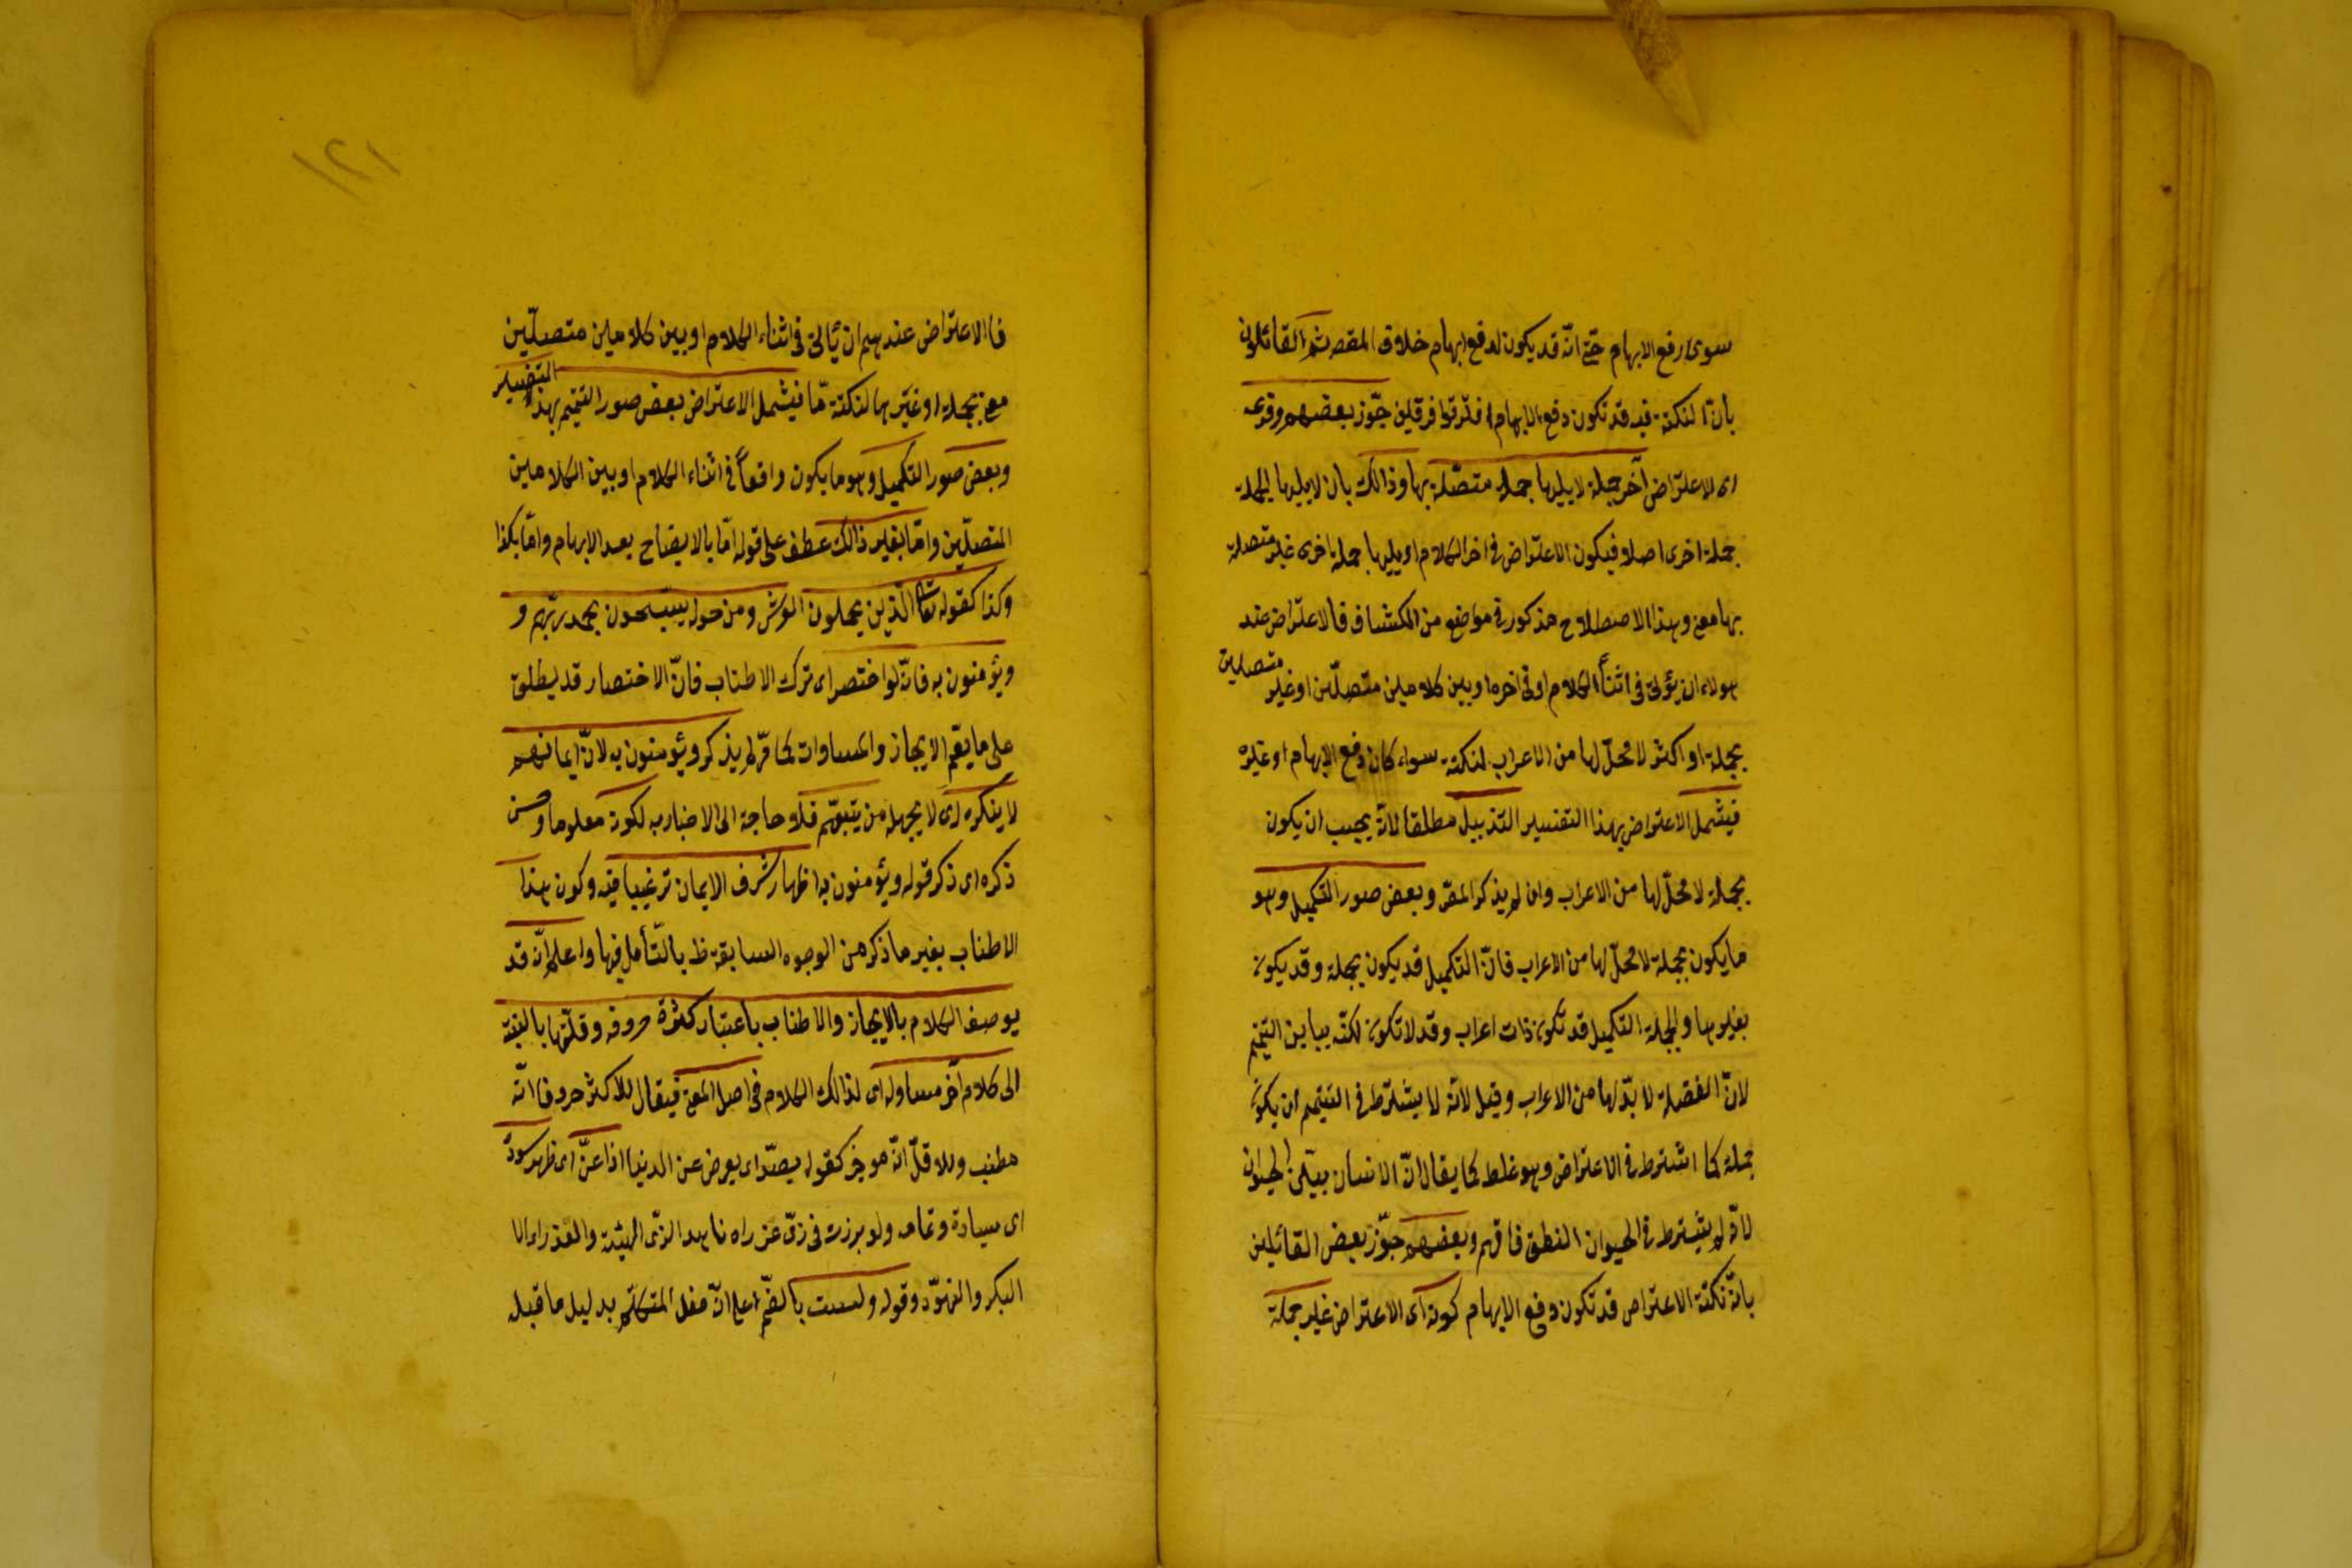 سوى رفع الابهام حتى انّه قد يكون لدفع ابهام خلاف المقصـ ثم القائلون
بانّ النكتة فيه قد تكون دفع الابهام افترقوا فرقتين جوّز بعضهم وقوعه
اى الاعتراض آخر جملة لا يليها جملة متصلة بها وذالك بان لا يليها الجملة
جملة اخرى اصلا فيكون الاعتراض فى اخر الكلام او يليها جملة اخرى غير متصلة
بها معنى وهذا الاصطلاح مذكور فى مواضع من الكشاف فالاعتراض عند
هولاء ان يؤتى فى اثناء الكلام او فى اخره او بين كلامين متصلّين او غير متصلين
بجملة او اكثر لا محلّ لها من الاعراب لنكتة سواء كان دفع الابهام او غيره
فيشمل الاعتراض بهذا التفسير التذييل مطلقا لانّه يجيب ان يكون
بجملة لا محلّ لها من الاعراب وان لم يذكر المصّ وبعض صور التكميل وهو
ما يكون بجملة لا محلّ لها من الاعراب فانّ التكميل قد يكون بجملة وقد يكون
بغيرها والجملة التكميل قد تكون ذات اعراب وقد لا تكون لكنّه يباين التتميم
لانّ الفضلة لا بدّ لها من الاعراب وقيل لانّه لا يشترط فى التتميم ان يكون
جملة كما اشترط فى الاعتراض وهو غلط كما يقال انّ الانسان يباين الحيوان
لانّه لم يشترط فى الحيوان النطق فافهم وبعضهم جوّز بعض القائلين
بانّ نكتة الاعتراض قد تكون دفع الابهام كونه اى الاعتراض غير جملة
١٢١
فالاعتراض عندهم ان يأتى فى اثناء الكلام او بين كلامين متصلّين
معنى بجملة او غيرها لنكتة مّا فيشمل الاعتراض بهذا التفسير بعض صور التتميم
وبعض صور التكميل وهو ما يكون واقعاً فى اثناء الكلام او بين الكلامين
المتصلّين وامّا بغير ذالك عطف على قوله امّا بالايضاح بعد الابهام وامّا بكذا
وكذا كقوله تعالى الذين يحملون العرش ومن حوله يسبّحون بحمد ربّهم و
ويؤمنون به فانّه لو اختصر اى ترك الاطناب فانّ الاختصار قد يطلق
على ما يعمّ الايجاز والمساوات كما مرّ لم يذكر ويؤمنون به لانّ ايمانهم
لا ينكره اى لا يجهله من يثبتهم فلا حاجة الى الاخبار به لكونه معلوما وحسن
ذكره اى ذكر قوله ويؤمنون به اظهار شرف الايمان ترغيبا فيه وكون هذا
الاطناب بغير ما ذكر من الوجوه السابقة ظ بالتّأمل فيها واعلم انّه قد
يوصف الكلام بالايجاز والاطناب باعتبار كثرة حروفه وقلّتها بالنسبة
الى كلام آخر مساو له اى لذالك الكلام فى اصل المعنى فيقال للاكثر حروفا انّه
مطنب وللاقلّ انّه موجز كقوله يصدّ اى يعرض عن الدنيا اذا عنّ اى ظهر سودد
اى سيادة وتمامه ولو برزت فى زىّ عذراء ناهد الزىّ الهيئة والعذراء
البكر والنهود وقوله ولست بالضمّ على انّه فعل المتكلّم بدليل ما قبله